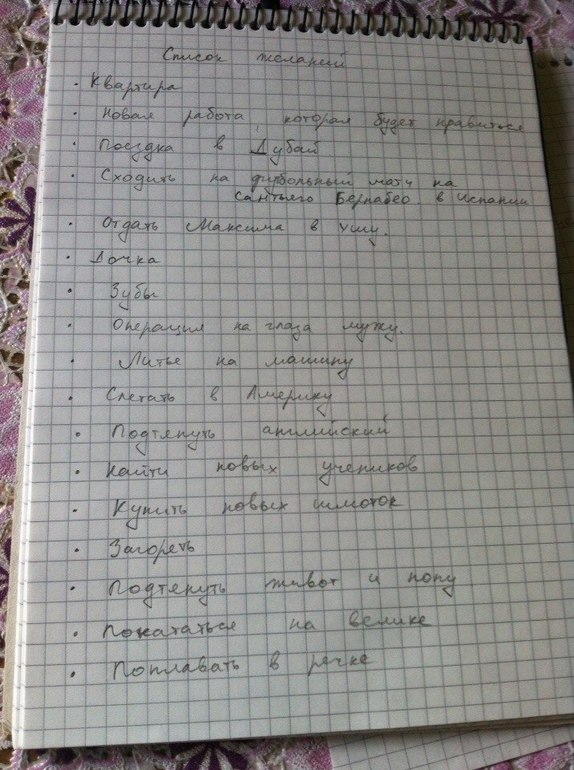 Список желаний
· Квартира
· Новая работа, которая будет нравиться
· Поездка в Дубай
· Сходить на футбольный матч на
Сантьяго Бернабео в Испании
· Отдать Максима в Ушу.
· Дочка
· Зубы
· Операция на глаза мужу.
· Литье на машину
· Слетать в Америку
· Подтянуть английский
· Найти новых учеников
· Купить новых шмоток
· Загореть
· Подтянуть живот и попу
· Покататься на велике
· Поплавать в речке